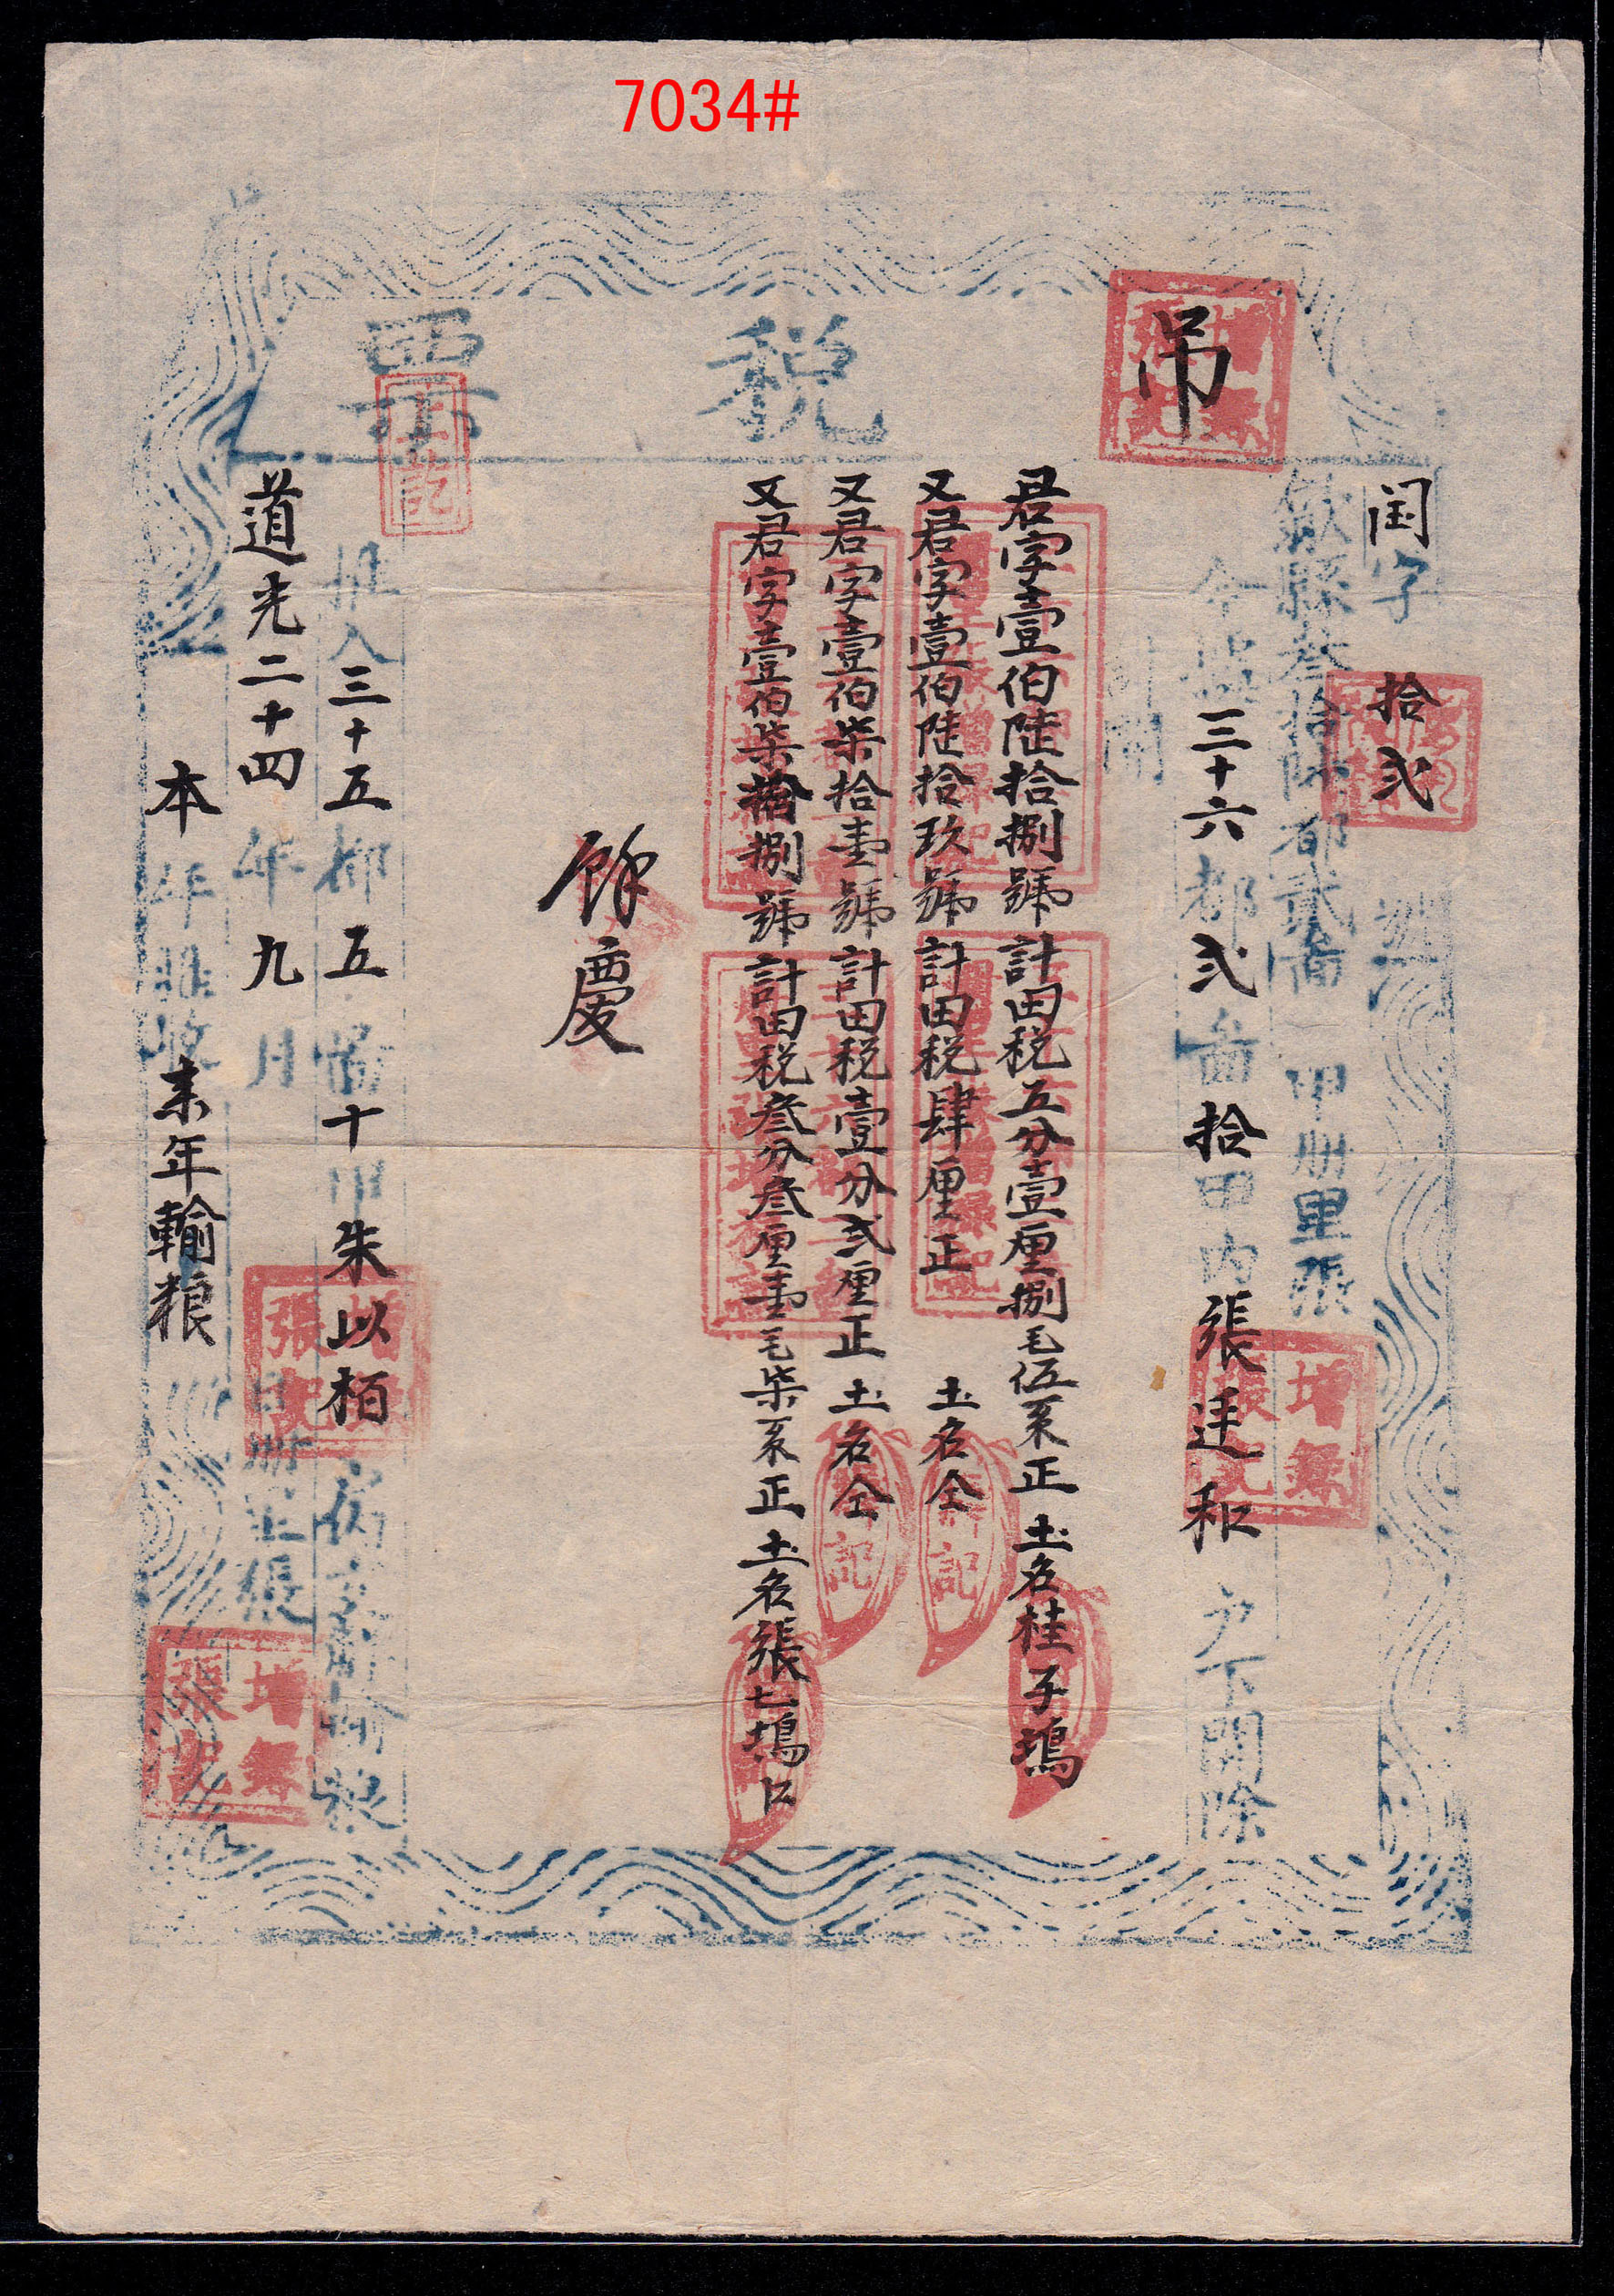 7034#
吊
稅票
閏字拾弍號
歙縣叁拾陸都貳啚 甲册里張
今據三十六都弍啚拾甲内張廷和户下開除
計開
君字壹伯陸拾捌號計田税五分壹厘捌毛伍系正 土名桂子塢
又君字壹伯陸拾玖號計田税肆厘正 土名仝
又君字壹伯柒拾壹號計田税壹分弍厘正 土名仝
又君字壹伯柒拾捌號計田税叁分叁厘壹毛柒系正 土名張七塢口
餘慶
推入三十五都五啚十甲朱以栢
道光二十四年九月 日册里張
本年推收來年輸粮
增錄張記
增錄張記
增錄張記
記
記